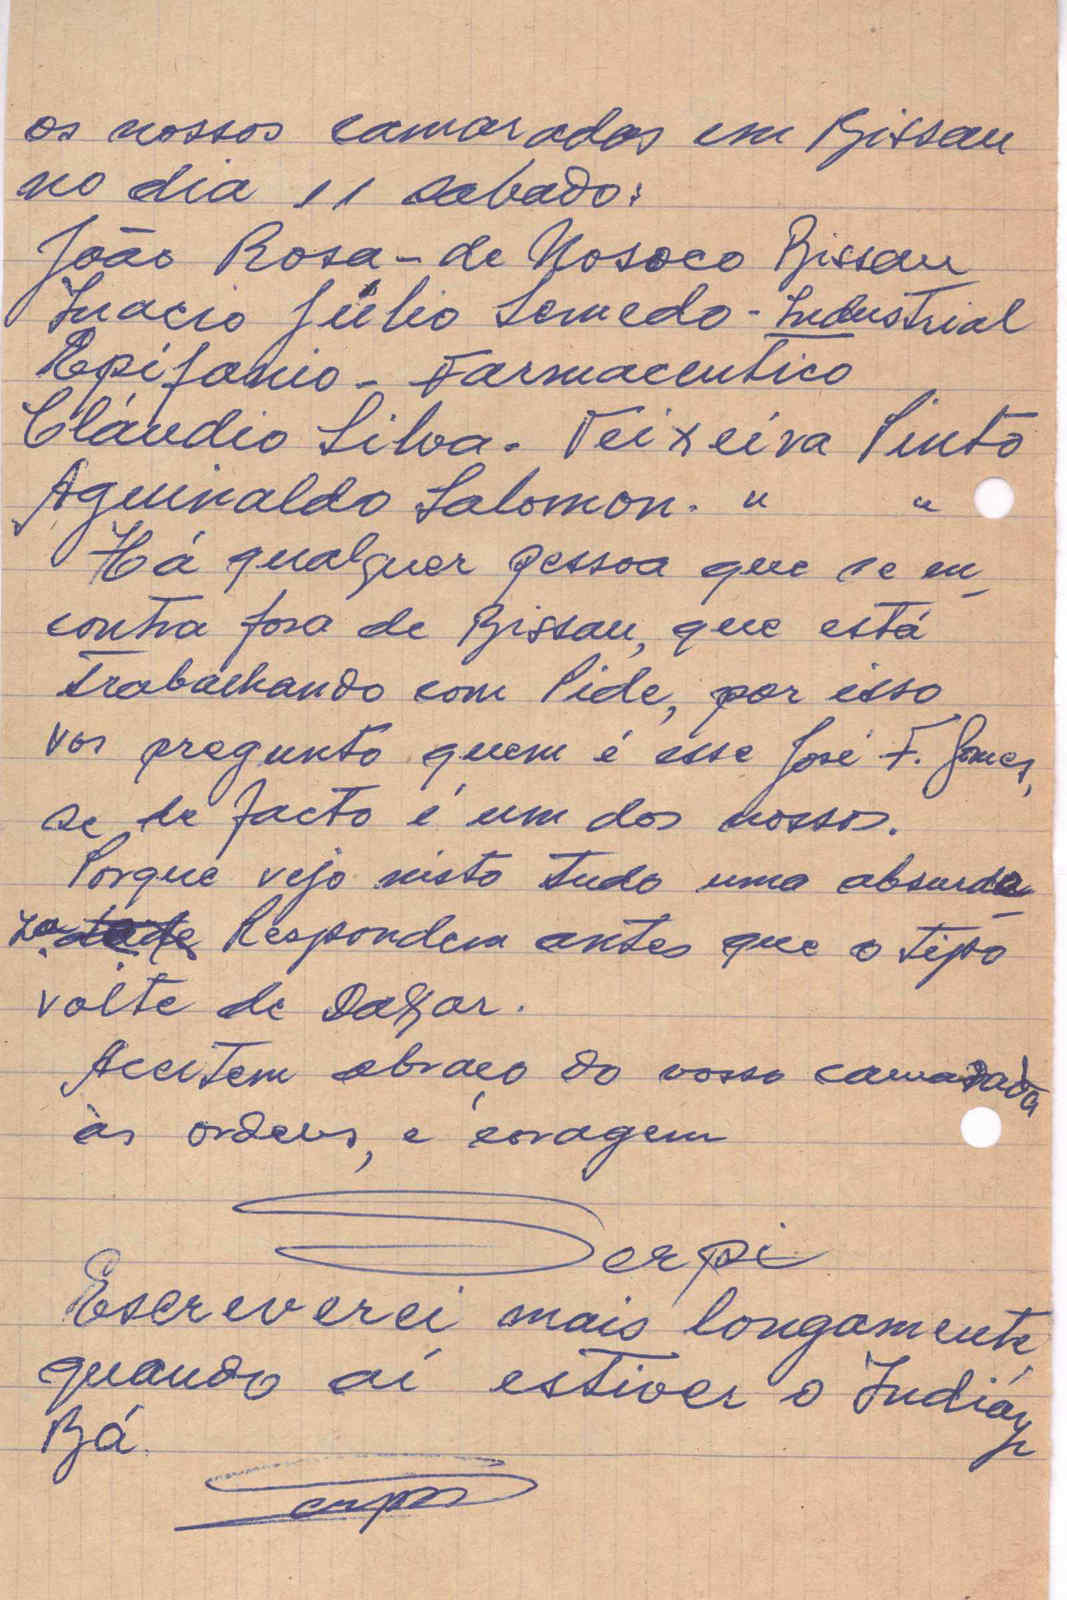 os nossos camaradas em Bissau
no dia 11 sabado:
João Rosa - de Nosoco Bissau
Inacio Júlio Semedo - Industrial
Epifanio - Farmaceutico
Cláudio Silva - Teixeira Pinto
Aguinaldo Salomon. " "
Há qualquer pessoa que se en_
contra fora de Bissau, que está
trabachando com Pide, por isso
vos pregunto quem é esse José F. Gomes,
se de facto é um dos nossos.
Porque vejo nisto tudo uma absurda
Respondem antes que o tipo
volte de Dakar.
Aceitem abraço do vosso camarada
às ordens, e coragem
Serpi
Escreverei mais longamente
quando aí estiver o
Bá
Serpi